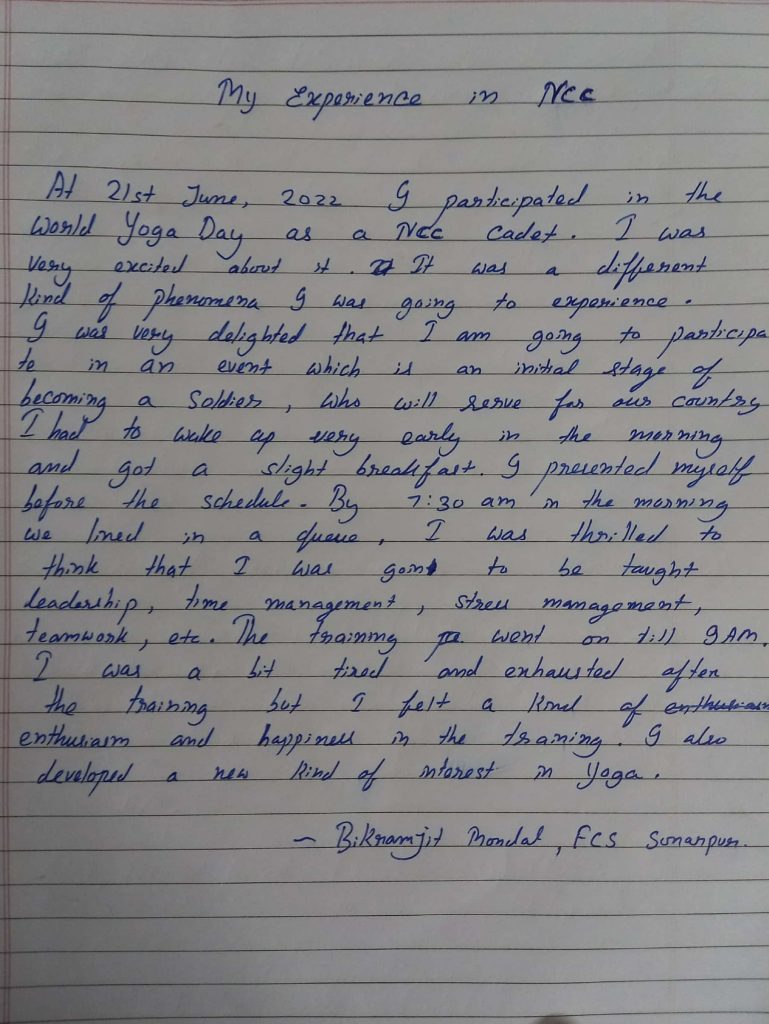 My Experience in Ncc
At 21st June, 2022 I participated in the
World Yoga Day as a Ncc cadet. I was
very excited about it. It was a different
kind of phenomena I was going to experience.
I was very delighted that I am going to participa
te in an event which is an initial stage of
becoming a Soldier, who will serve for our country
I had to wake up very early in the morning
and got a slight breakfast. I presented myself
before the schedule. By 7:30 am in the morning
we lined in a queue, I was thrilled to
think that I was going to be taught
leadership, time management, stress management,
teamwork, etc. The training went on till 9AM.
I was a bit tired and exhausted after
the training but I felt a kind of enthusiasm
enthusiasm and happiness in the training. I also
developed a new kind of interest in Yoga.
~ Bikramjit Mondal, FCS Sonarpur.